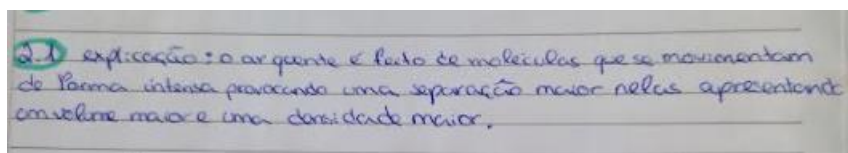 2.1 explicação: o ar quente é feito de moleculas que se movimentam
de forma intensa provocando uma separação maior nelas apresentando
um volume maior e uma densidade maior.